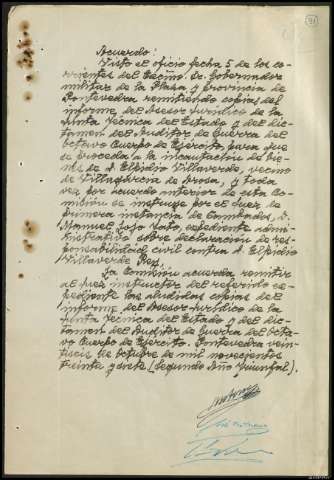 Acuerdo:
Visto el oficio fecha 5 de los co-
rrientes del Excmo. Sr. Gobernador
militar de la Plaza y provincia de
Pontevedra remitiendo copias del
informe del Asesor Jurídico de la
Junta Técnica del Estado y del dic-
tamen del Auditor de Guerra del
octavo Cuerpo de Ejército, para que
se proceda a la incautación de bie-
nes de D. Elpidio Villaverde, vecino
de Villagarcía de Arosa, y toda
vez por acuerdo anterior de esta Co-
misión se instruye por el Juez de
primera instancia de Cambados, D.
Manuel Lojo Tato, expediente admi-
nistrativo sobre declaración de res-
ponsabilidad civil contra D. Elpidio
Villaverde Rey,
La Comisión acuerda remitir
al Juez instructor del referido ex-
pediente las aludidas copias del
informe del Asesor Jurídico de la
Junta Técnica del Estado y del dic-
tamen del Auditor de Guerra del octa-
vo Cuerpo de Ejército. Pontevedra vein-
tiseis de octubre de mil novecientos
treinta y siete (Segundo Año Triunfal).